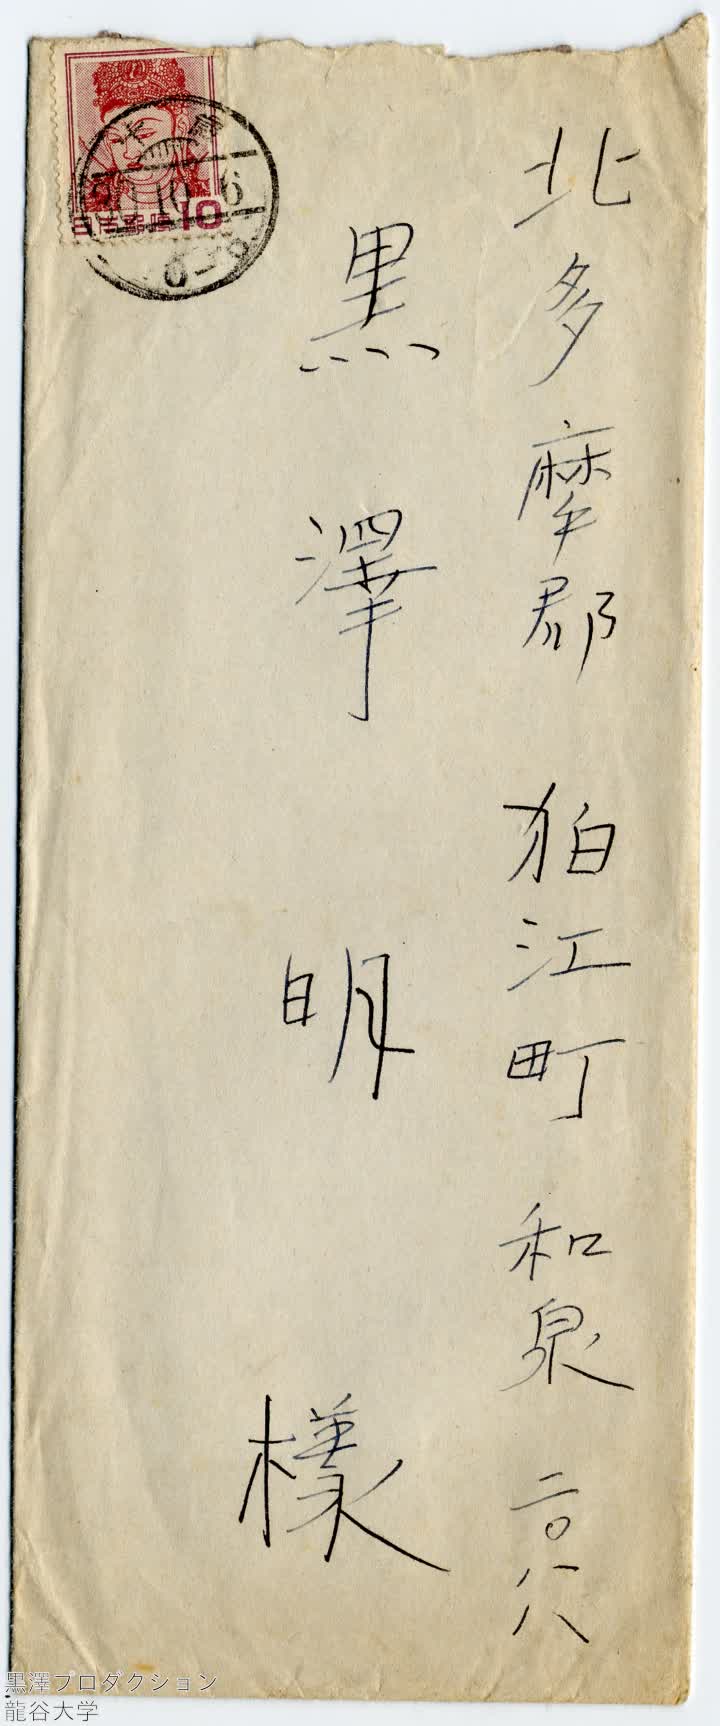 北多摩郡狛江町和泉二〇八
黒澤明様
10
10. 6
黒澤プロダクション
龍谷大学